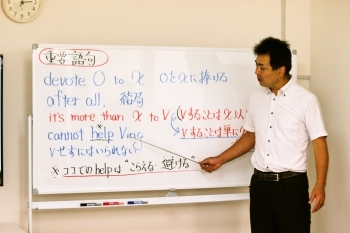 重要語句
devote O to X OをXに捧げる
after all, 結局
it's more than X to V (Vすることは X以
Vすることは単に
cannot help Ving
Vせずにはいられない
※ ココでのhelpは"こらえる・避ける"